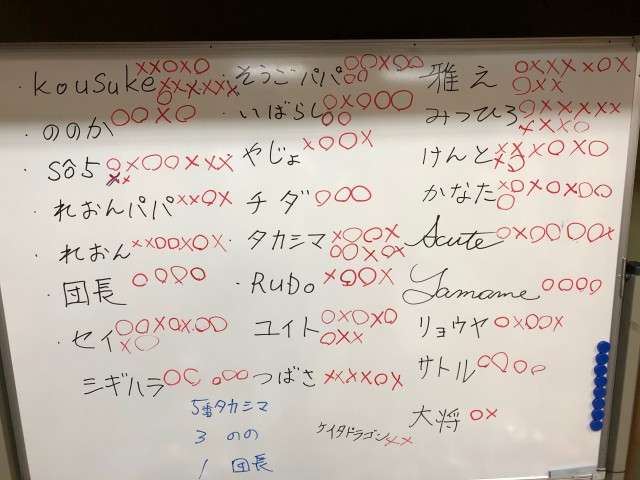 ・kousuke ××○×○
××××××
・ののか ○○×○
・sô5 ○×○○×××
××
・れおんパパ ××○×
・れおん ××○○×○×
・団長 ○○○○
・セイ ○○×○×○○
×○
シギハラ ○○ ○○○
・そうごパパ ○○×○○
○○
・いばらし ○×○○○
○○
・やじょ ×○○×
・チダ ○○○
・タカシマ ×○○×
○○×○×
・RuDo ×○○×
ユイト ○×○×○
○××
つばさ ××××○×
雅え ○××××○×
○××
みつひろ ○××××××
××××○
けんと ×××○×○
×○
かなた ×○×○×○○
○
Acute ○×○○○○×
Yamame ○○○○
リョウヤ ○×○○××
サトル ○○○○
大将 ○×
ケイタドラゴン ××
5番タカシマ
3 のの
1 団長